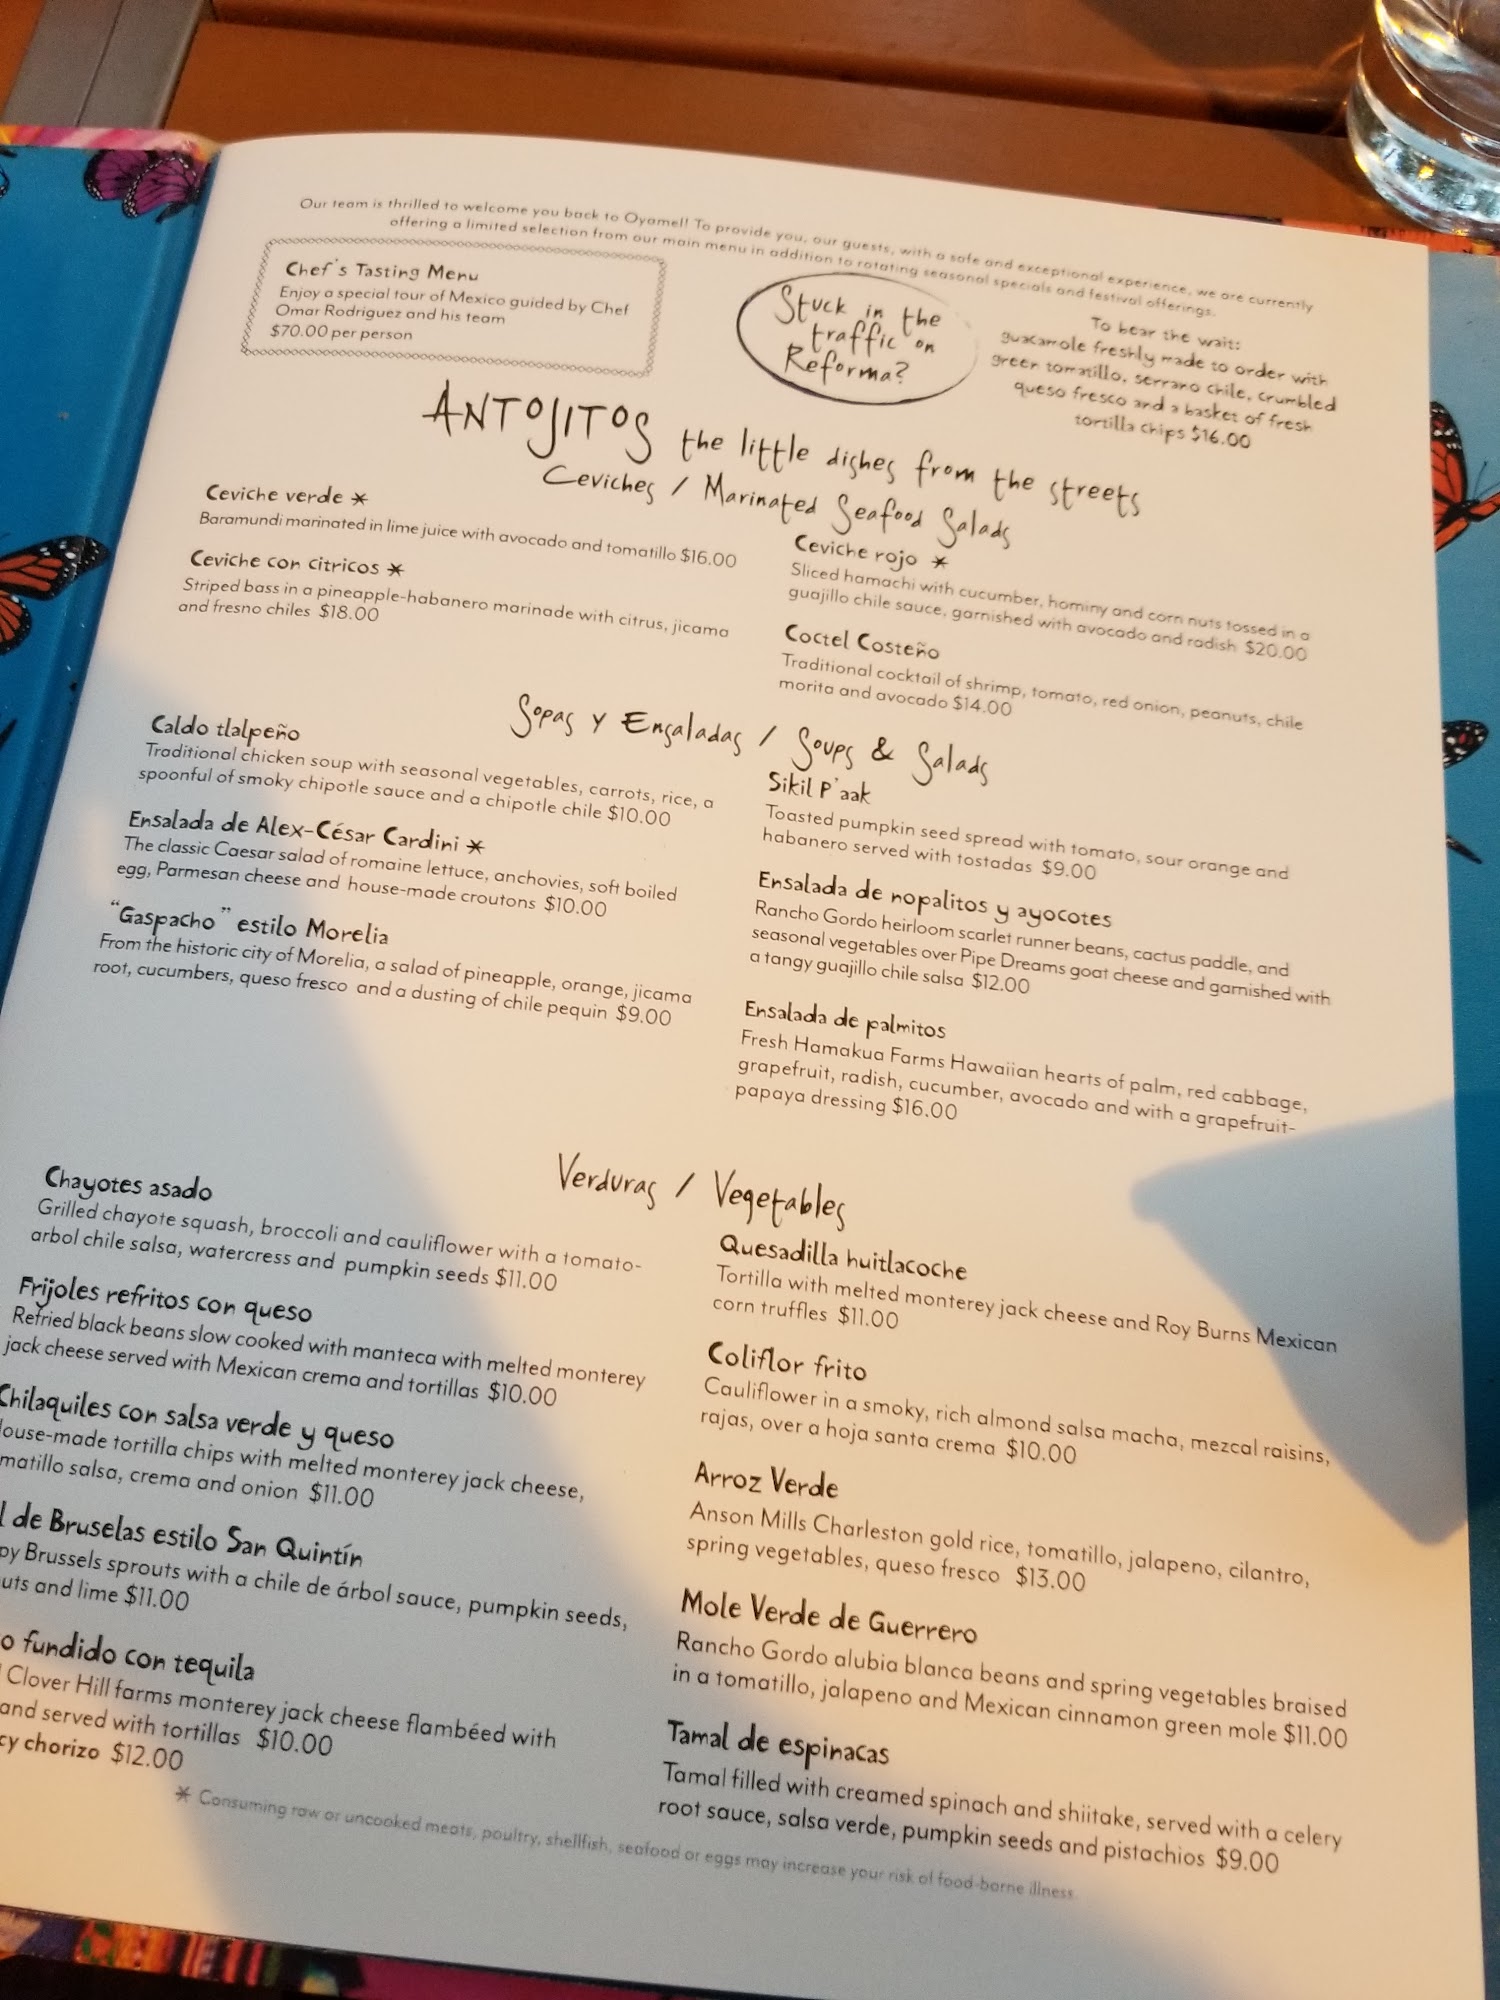 Our team is thrilled to welcome you back to Oyamel! To provide you, our guests, with a safe and exceptional experience, we are currently
offering a limited selection from our main menu in addition to rotating seasonal specials and festival offerings.
Chef's Tasting Menu
Enjoy a special tour of Mexico guided by Chef
Omar Rodriguez and his team
$70.00 per person
Stuck in the
traffic on
Reforma?
To bear the wait:
guacamole freshly made to order with
green tomatillo, serrano chile, crumbled
queso fresco and a basket of fresh
tortilla chips $16.00
ANTOJITOS the little dishes from the streets
Ceviches / Marinated Seafood Salads
Ceviche verde *
Baramundi marinated in lime juice with avocado and tomatillo $16.00
Ceviche con citricos *
Striped bass in a pineapple-habanero marinade with citrus, jicama
and fresno chiles $18.00
Ceviche rojo *
Sliced hamachi with cucumber, hominy and corn nuts tossed in a
guajillo chile sauce, garnished with avocado and radish $20.00
Coctel Costeño
Traditional cocktail of shrimp, tomato, red onion, peanuts, chile
morita and avocado $14.00
Sopas y Ensaladas / Soups & Salads
Caldo tlalpeño
Traditional chicken soup with seasonal vegetables, carrots, rice, a
spoonful of smoky chipotle sauce and a chipotle chile $10.00
Ensalada de Alex-César Cardini *
The classic Caesar salad of romaine lettuce, anchovies, soft boiled
egg, Parmesan cheese and house-made croutons $10.00
"Gaspacho" estilo Morelia
From the historic city of Morelia, a salad of pineapple, orange, jicama
root, cucumbers, queso fresco and a dusting of chile pequin $9.00
Sikil P'aak
Toasted pumpkin seed spread with tomato, sour orange and
habanero served with tostadas $9.00
Ensalada de nopalitos y ayocotes
Rancho Gordo heirloom scarlet runner beans, cactus paddle, and
seasonal vegetables over Pipe Dreams goat cheese and garnished with
a tangy guajillo chile salsa $12.00
Ensalada de palmitos
Fresh Hamakua Farms Hawaiian hearts of palm, red cabbage,
grapefruit, radish, cucumber, avocado and with a grapefruit-
papaya dressing $16.00
Verduras / Vegetables
Chayotes asado
Grilled chayote squash, broccoli and cauliflower with a tomato-
arbol chile salsa, watercress and pumpkin seeds $11.00
Frijoles refritos con queso
Refried black beans slow cooked with manteca with melted monterey
jack cheese served with Mexican crema and tortillas $10.00
Chilaquiles con salsa verde y queso
House-made tortilla chips with melted monterey jack cheese,
matillo salsa, crema and onion $11.00
l de Bruselas estilo San Quintín
py Brussels sprouts with a chile de árbol sauce, pumpkin seeds,
uts and lime $11.00
o fundido con tequila
Clover Hill farms monterey jack cheese flambéed with
and served with tortillas $10.00
cy chorizo $12.00
Quesadilla huitlacoche
Tortilla with melted monterey jack cheese and Roy Burns Mexican
corn truffles $11.00
Coliflor frito
Cauliflower in a smoky, rich almond salsa macha, mezcal raisins,
rajas, over a hoja santa crema $10.00
Arroz Verde
Anson Mills Charleston gold rice, tomatillo, jalapeno, cilantro,
spring vegetables, queso fresco $13.00
Mole Verde de Guerrero
Rancho Gordo alubia blanca beans and spring vegetables braised
in a tomatillo, jalapeno and Mexican cinnamon green mole $11.00
Tamal de espinacas
Tamal filled with creamed spinach and shiitake, served with a celery
root sauce, salsa verde, pumpkin seeds and pistachios $9.00
* Consuming raw or uncooked meats, poultry, shellfish, seafood or eggs may increase your risk of food-borne illness